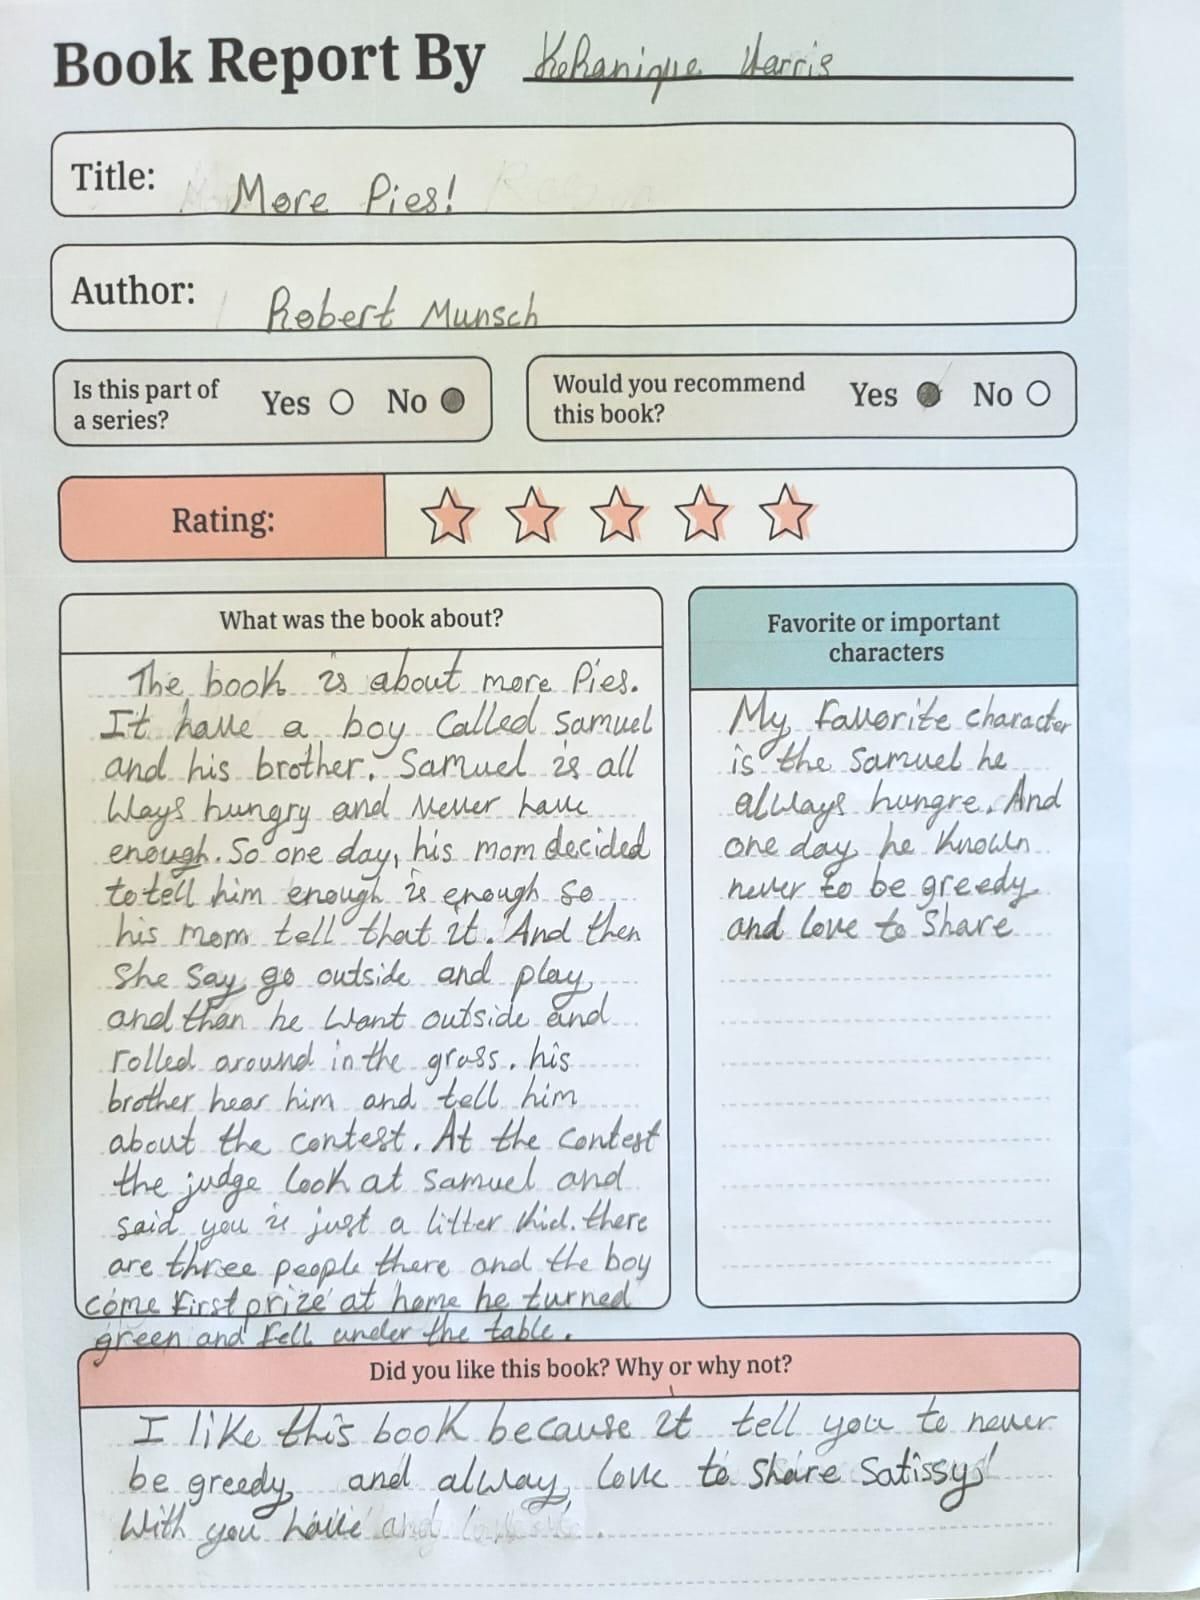 Book Report By Kehanique Harris
Title: More Pies!
Author: Robert Munsch
Is this part of
a series?
Yes No
Would you recommend
this book?
Yes No
Rating:
What was the book about?
The book is about more Pies.
It have a boy Called Samuel
and his brother. Samuel is all
Ways hungry and Never have
enough. So one day, his mom decided
to tell him enough is enough so
his mom tell that it. And then
She Say go outside and play
and than he Want outside and
rolled around in the grass. his
brother hear him and tell him
about the contest. At the contest
the judge look at Samuel and
said you is just a litter kid. there
are three people there and the boy
come first prize at home he turned
green and fell under the table.
Favorite or important
characters
My favorite character
is the Samuel he
always hungre. And
one day he Known
never to be greedy
and love to Share
Did you like this book? Why or why not?
I like this book because it tell you to never
be greedy and alway love to Share Satissy
With you have